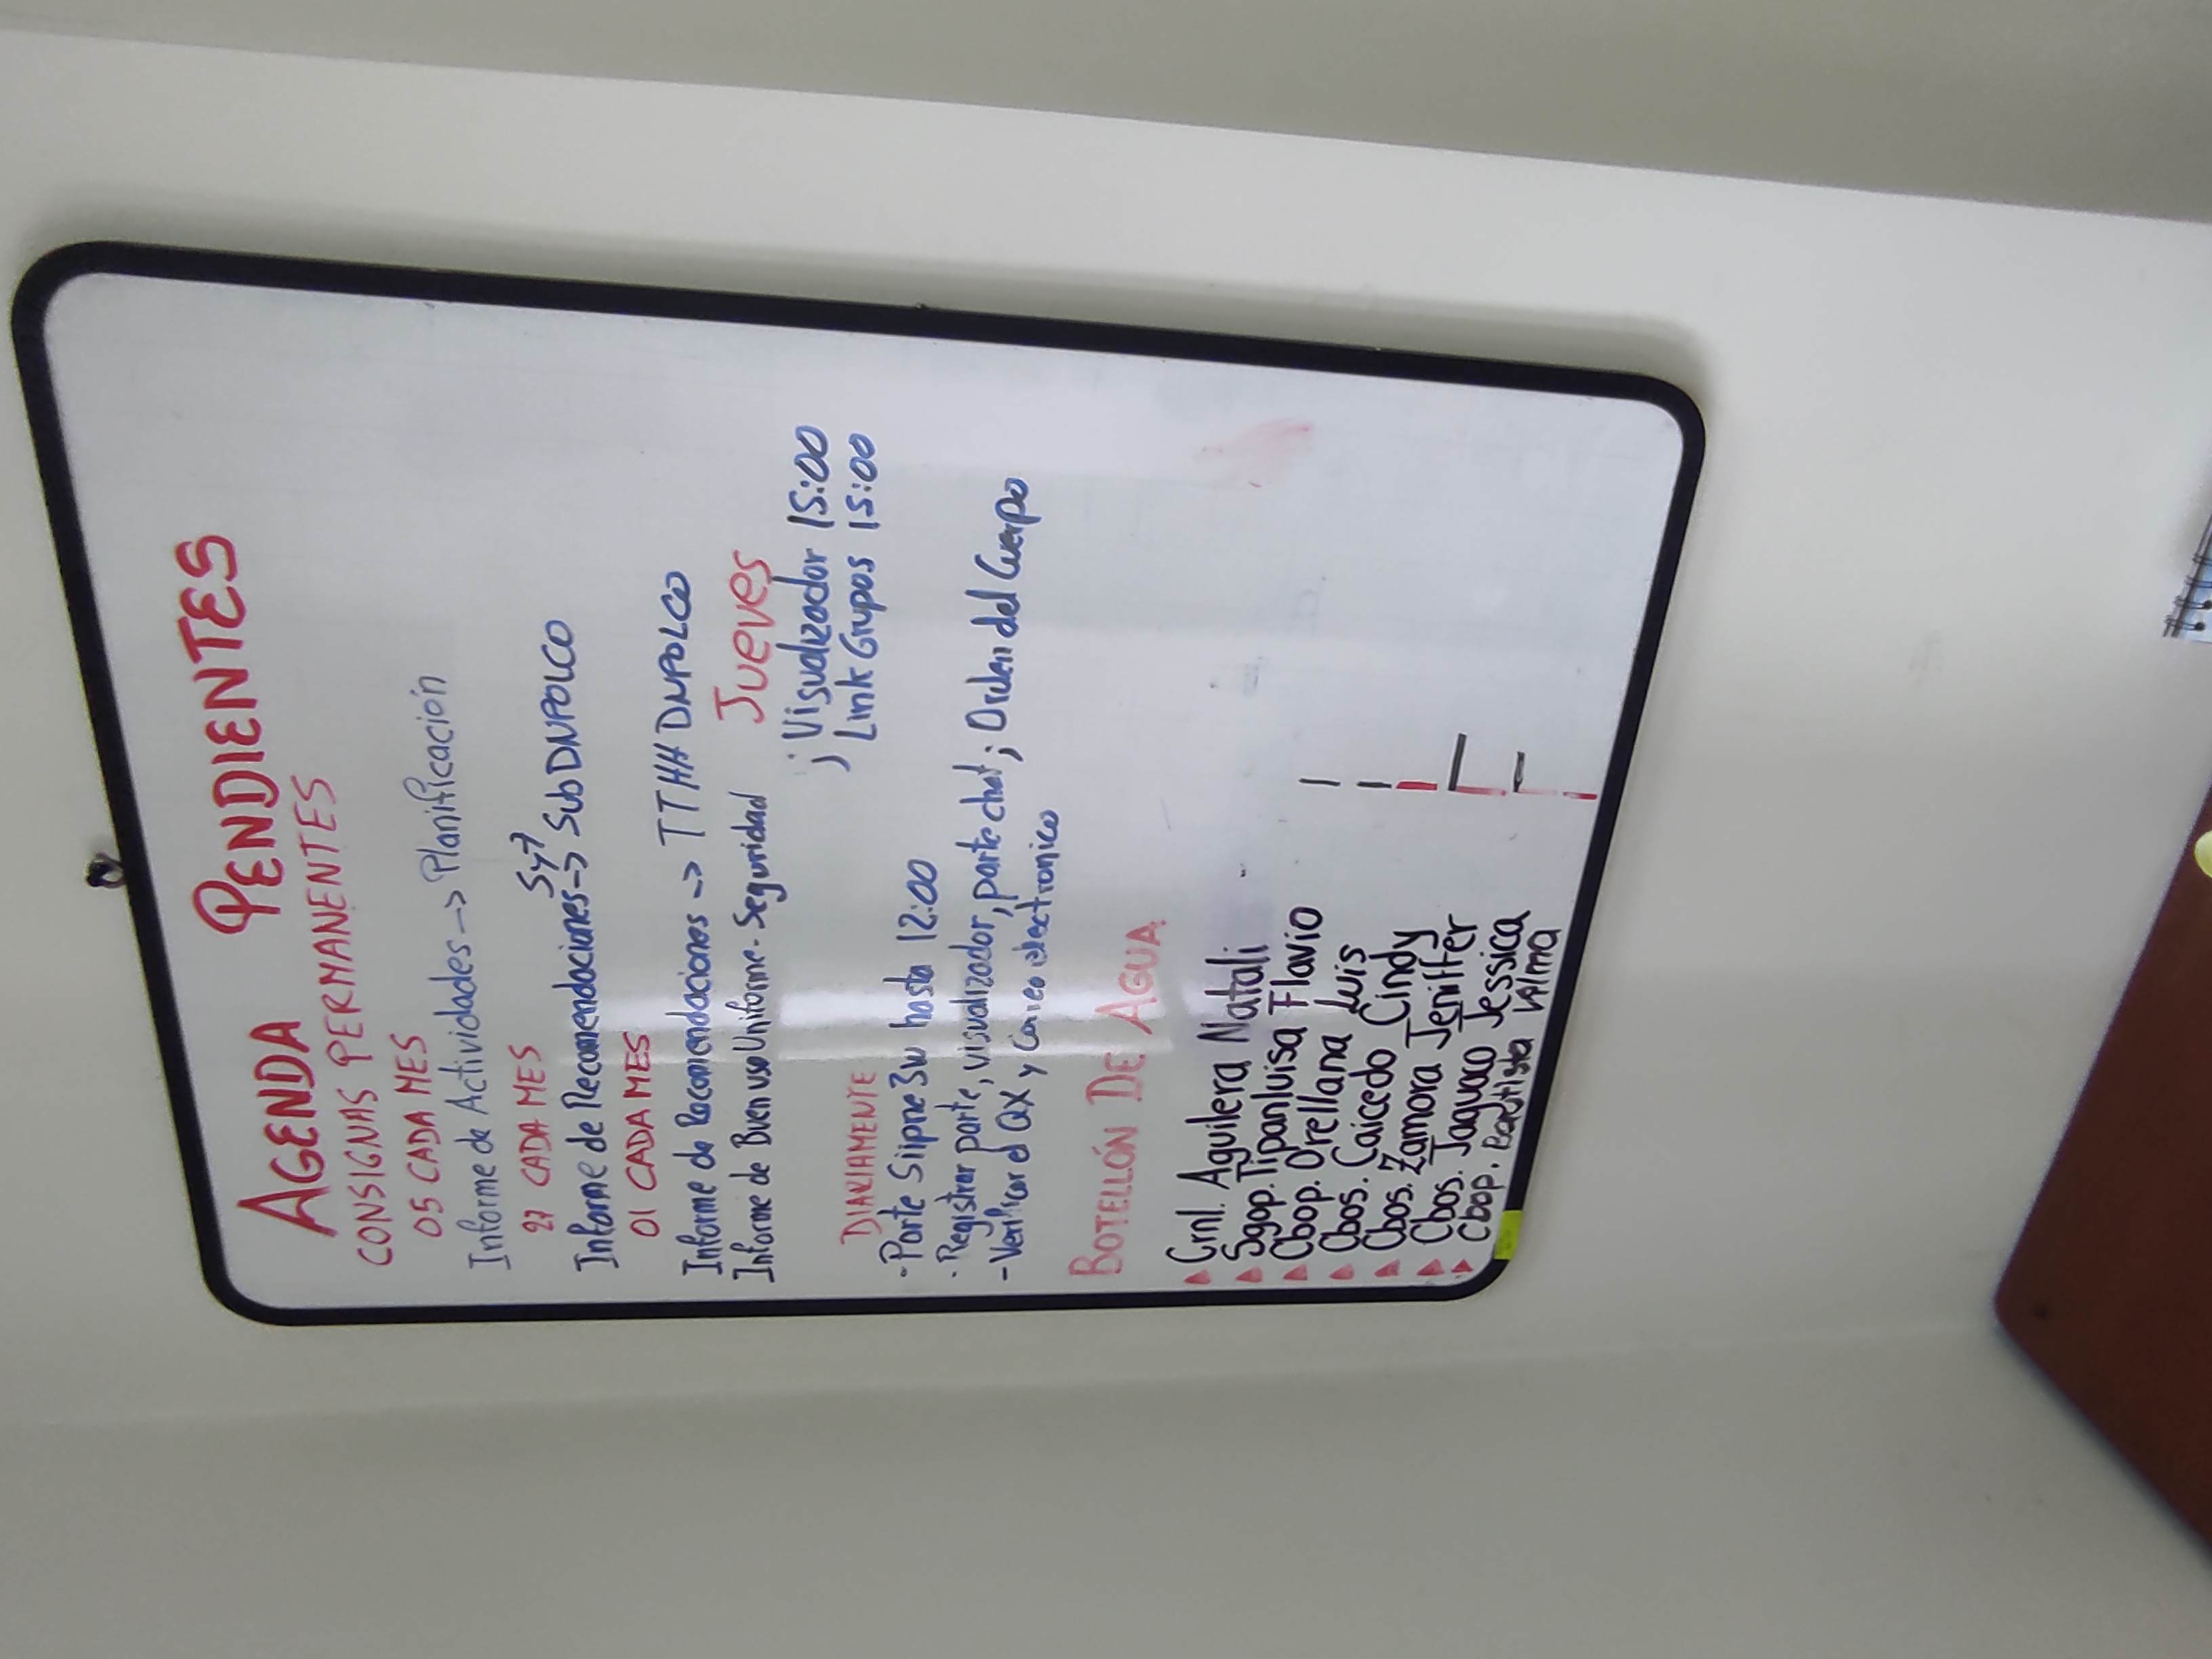 AGENDA PENDIENTES
CONSIGNAS PERMANENTES
05 CADA MES
Informe de Actividades -> Planificación
27 CADA MES
Informe de Recomendaciones -> SubDNPOLCO
01 CADA MES
Informe de Recomendaciones -> TTHH DNPOLCO
Informe de Buen uso Uniforme - Seguridad
Jueves
; Visualizador 15:00
Link Grupos 15:00
DIARIAMENTE
- Parte Siipne 3w hasta 12:00
- Registrar parte, visualizador, parte chat; Orden del Cuerpo
- Verificar el QX y Correo electronico
BOTELLÓN DE AGUA
Crnl. Aguilera Natali
Sgop. Tipanluisa Flavio
Cbop. Orellana Luis
Cbos. Caicedo Cindy
Cbos. Zamora Jeniffer
Cbos. Jaguaco Jessica
Cbop. Bautista Vilma